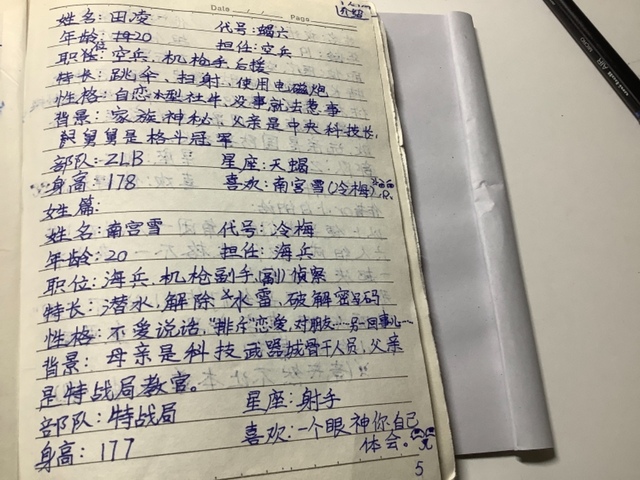 Date Page
介绍
姓名:田凌 代号:蝎六
年龄:20 担任:空兵
职位:空兵、机枪手后援
特长:跳伞、扫射、使用电磁炮
性格:自恋型社牛,没事就去惹事
背景:家族神秘,父亲是中央科技长,
舅舅是格斗冠军
部队:ZLB 星座:天蝎
身高:178 喜欢:南宫雪(冷梅)
女生篇:
姓名:南宫雪 代号:冷梅
年龄:20 担任:海兵
职位:海兵、机枪副手、(副)侦察
特长:潜水、解除水雪、破解密码
性格:不爱说话,"排斥"恋爱,对朋友……另一回事儿…
背景:母亲是科技武器城骨干人员,父亲
是特战局教官。
部队:特战局 星座:射手
身高:177 喜欢:一个眼神你自己
体会。
5